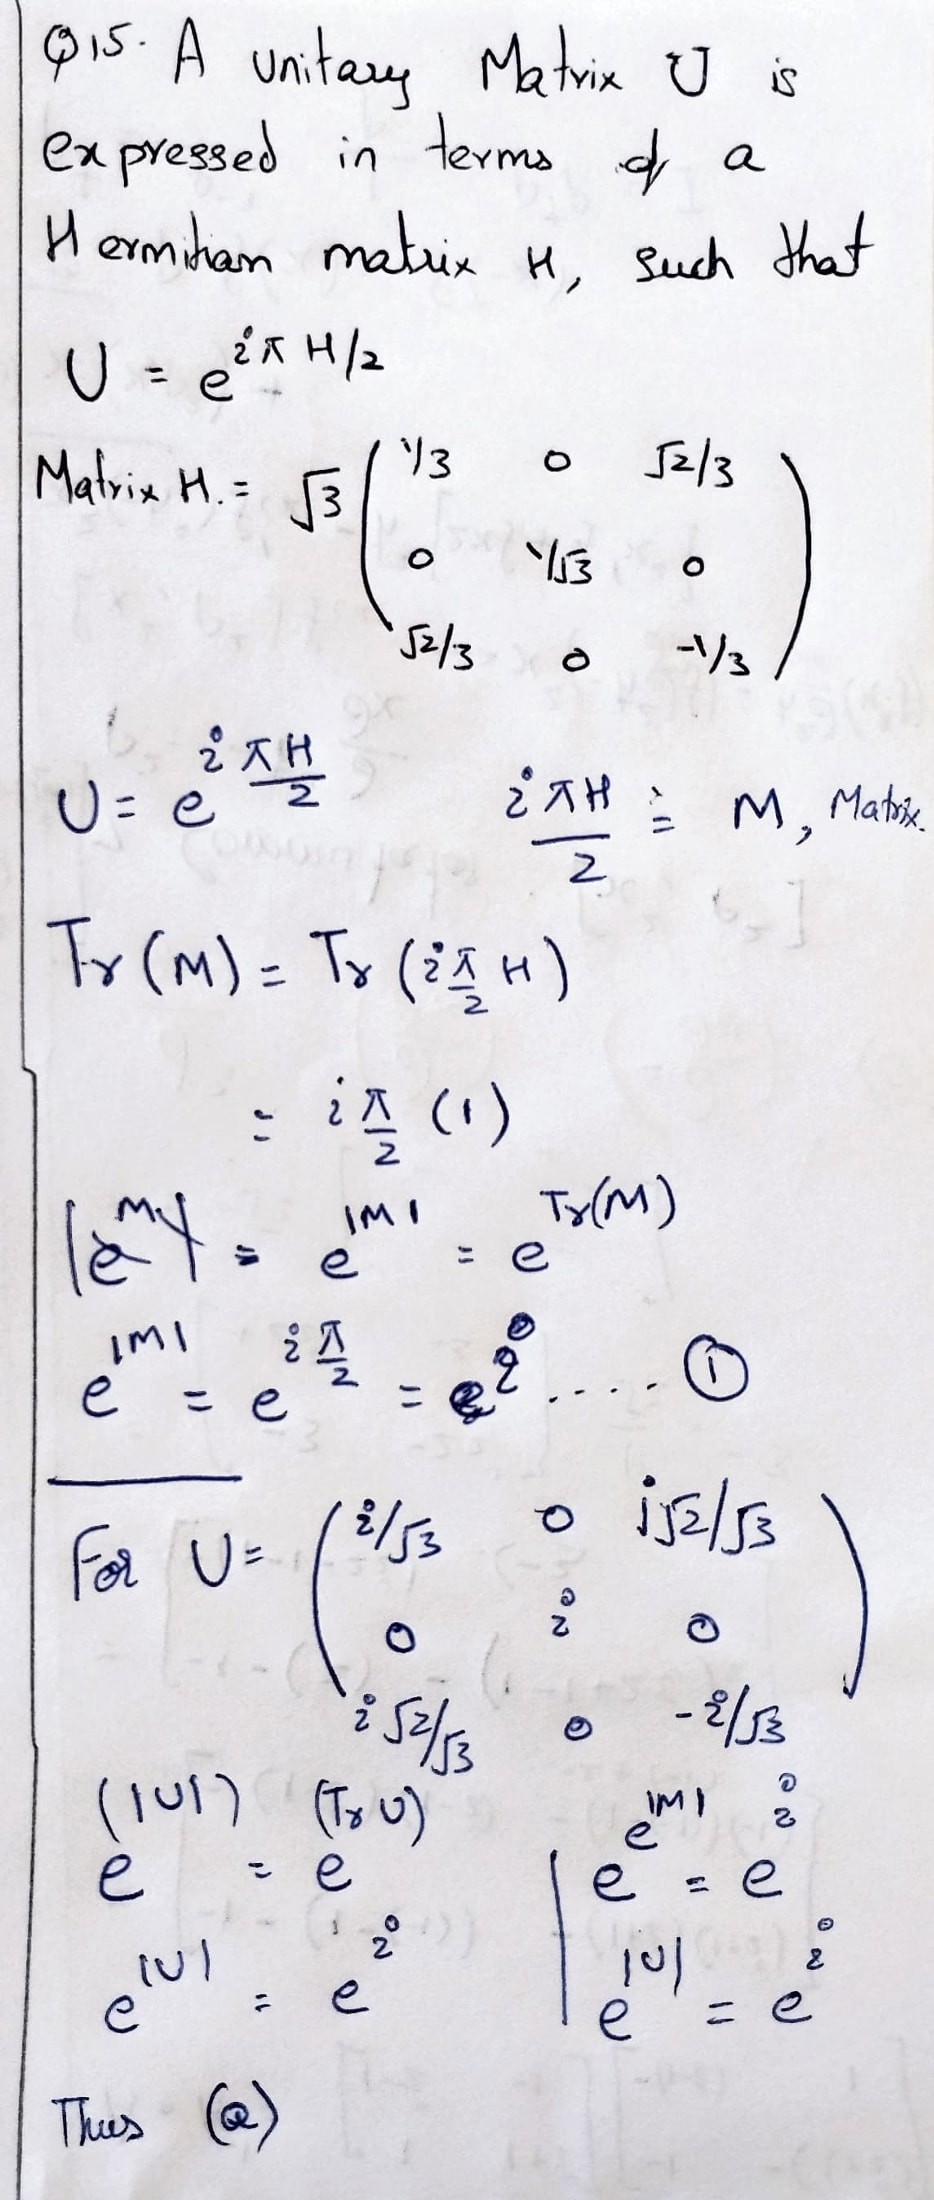 Q15. A unitary Matrix U is
expressed in terms of a
Hermitian matrix H, such that
U = e^{iπH/2}
Matrix H. = √3 ( 1/3 0 √2/3
0 1/√3 0
√2/3 0 -1/3 )
U = e^{iπH/2} iπH/2 = M, Matrix.
Tr(M) = Tr(iπ/2 H)
= iπ/2 (1)
|e^M| = e^{|M|} = e^{Tr(M)}
e^{|M|} = e^{iπ/2} = i ..... ①
For U = ( i/√3 0 i√2/√3
0 i 0
i√2/√3 0 -i/√3 )
e^{(|U|)} = e^{(Tr U)} | e^{e^{|M|}} = e^i
e^{|U|} = e^i | e^{|U|} = e^i
Thus (a)